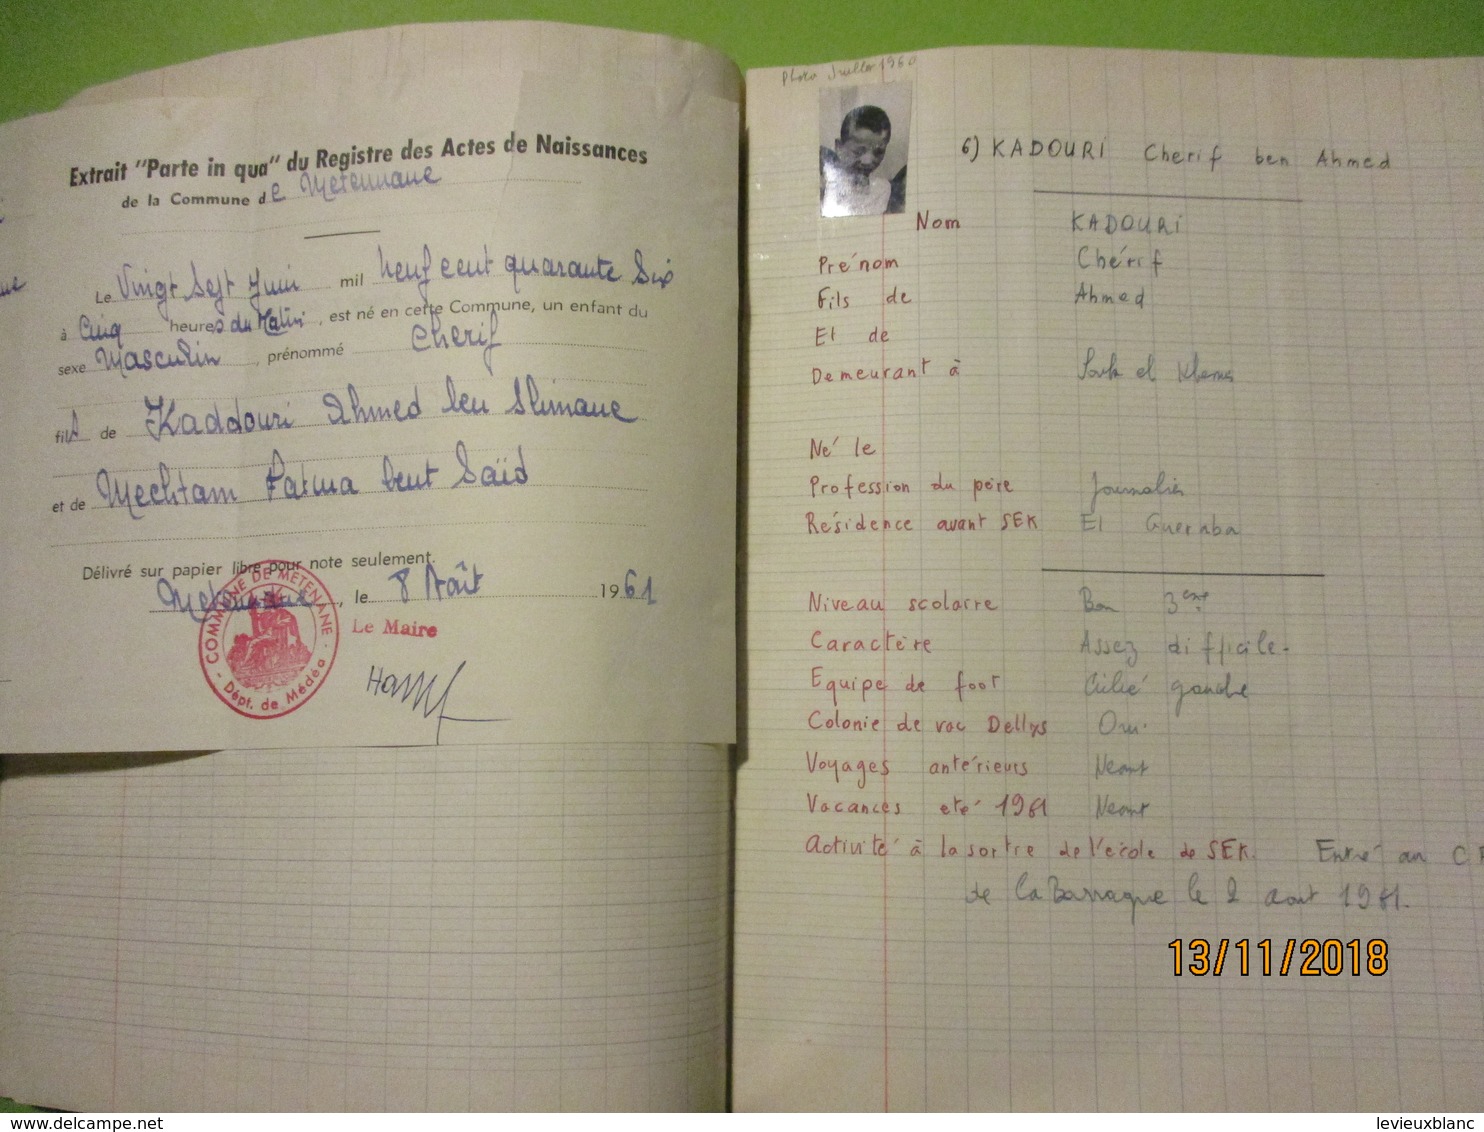 Extrait "Parte in qua" du Registre des Actes de Naissances
de la Commune de Metennane
Le Vingt Sept Juin mil neuf cent quarante Six
à Cinq heures du Matin, est né en cette Commune, un enfant du
sexe Masculin, prénommé Cherif
fils de Kaddouri Ahmed ben Slimane
et de Mechtam Fatma bent Saïd
Délivré sur papier libre pour note seulement.
Metennane, le 8 Août 1961
COMMUNE DE METENANE
Dépt. de Médéa
Le Maire
Photo Juillet 1960
6) KADOURI Cherif ben Ahmed
Nom KADOURI
Prénom Chérif
Fils de Ahmed
Et de
Demeurant à Souk el Khemis
Né le
Profession du père Journalier
Résidence avant SEK El Gueraba
Niveau scolaire Bon 3eme
Caractère Assez difficile.
Equipe de foot Ailié gauche
Colonie de vac Dellys Oui.
Voyages antérieurs Neant
Vacances eté 1961 Neant
Activité à la sortie de l'école de SEK. Entré au C F
de la Barraque le 2 aout 1961.
13/11/2018
www.delcampe.net
levieuxblanc